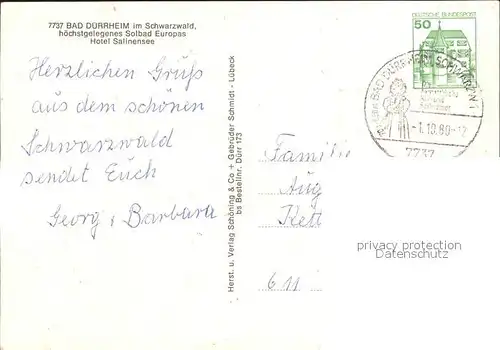 7737 BAD DÜRRHEIM im Schwarzwald,
höchstgelegenes Solbad Europas
Hotel Salinensee
Herzlichen Gruß
aus dem schönen
Schwarzwald
sendet Euch
Georg, Barbara
Herst. u. Verlag Schöning & Co + Gebrüder Schmidt - Lübeck
bs Bestellnr. Dürr 173
50
DEUTSCHE BUNDESPOST
BAD DÜRRHEIM SCHWARZW 1
-1.10.80-12
7737
Familie
Aug
611
privacy protection
AnsichtskartenHandel.de